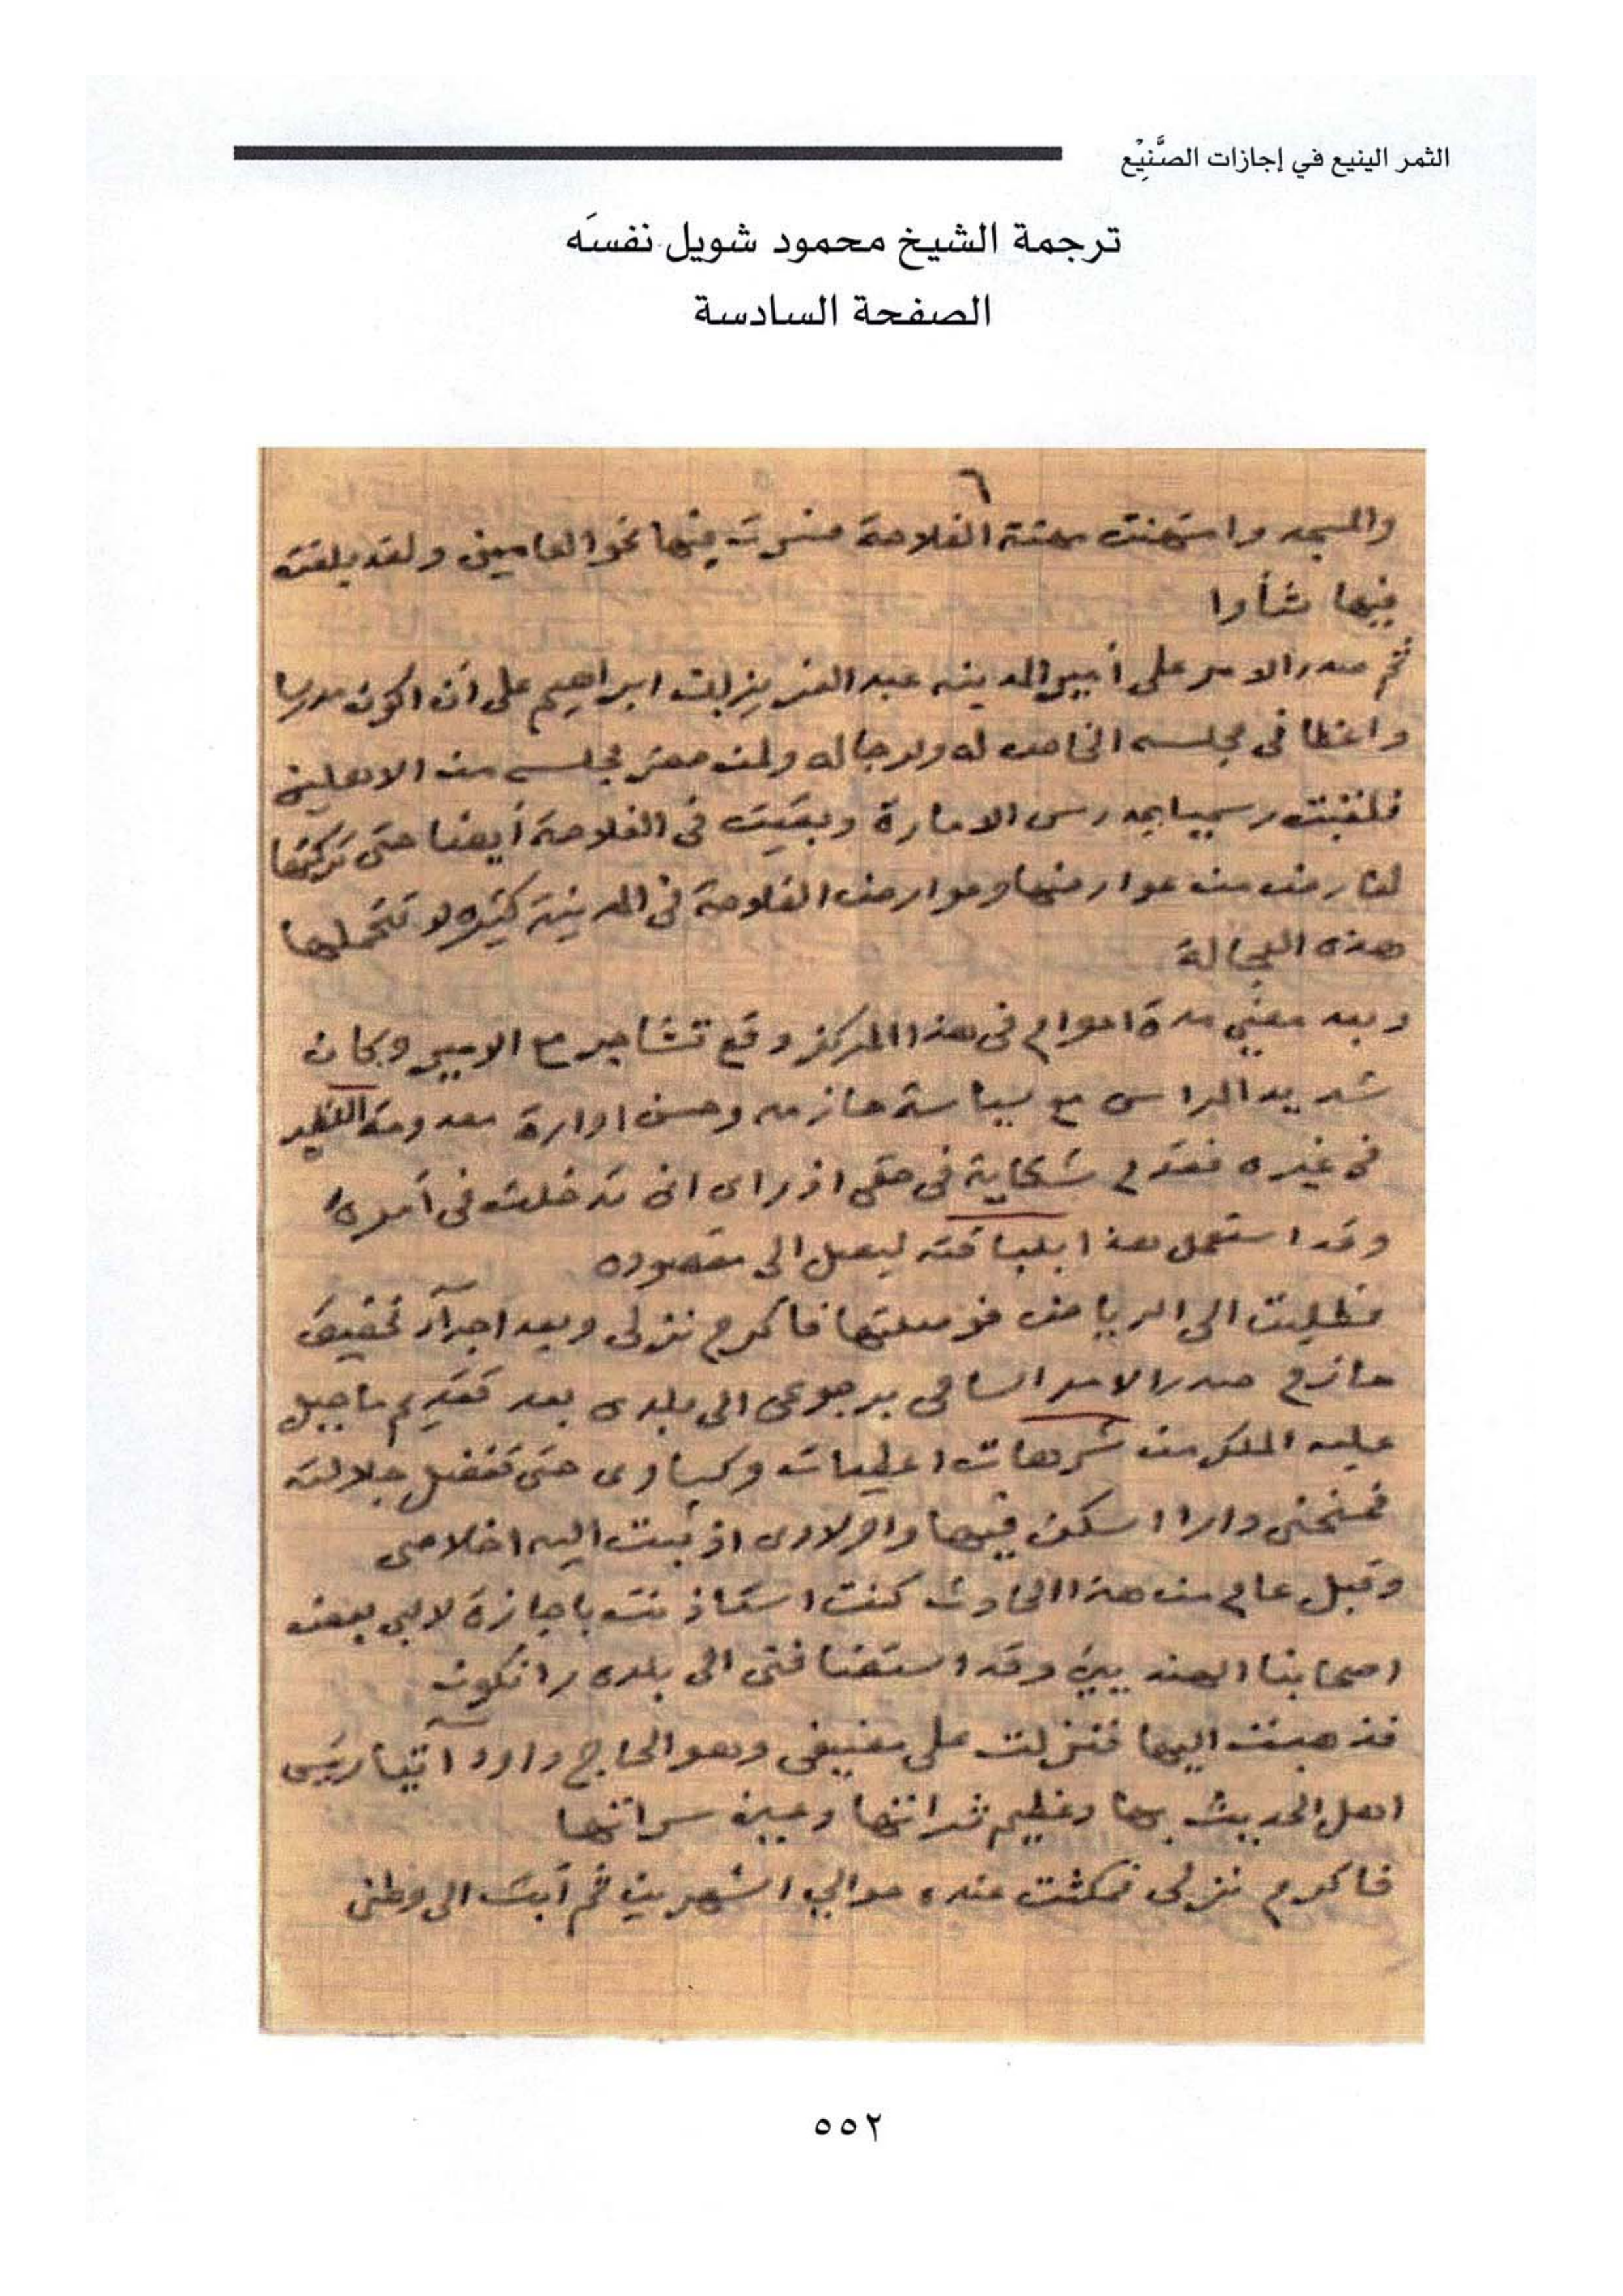 الثمر الينيع في إجازات الصَّنِيْع
ترجمة الشيخ محمود شويل نفسَه
الصفحة السادسة
٦
والمسجد وامتهنت مهنة الفلاحة فسرت فيها نحو العامين ولقد بلغت
فيها شأوا
ثم صدر الامر على أمير المدينه عبد العزيز بن ابراهيم على أن اكون مدرسا
واعظا في مجلسه الخاص له ولرجاله ولمن حضر مجلسه من الاهلين
فلقبت رسميا بمدرس الامارة وبقيت في الفلاحة أيضا حتى تركتها
لعارض من عوارضها وعوارض الفلاحة في المدينة كثيره لا تتحملها
هذه العجالة
وبعد مضي مدة اعوام في هذا المركز وقع تشاجر مع الامير وكان
شديد المراس مع سياسة حازمه وحسن ادارة معدومة النظير
في غيره فقدم شكاية في حقي اذ راى انى تدخلت في أموره
وقد استعمل هذا بلباقته ليصل الى مقصوده
فطلبت الى الرياض فوصلتها فأكرم نزلى وبعد اجرآء تحقيق
حازم صدر الامر السامى برجوعى الى بلدى بعد تقديم ما جبل
عليه الملك من شرهات اعطيات وكساوى حتى تفضل جلالته
فمنحنى دارا اسكن فيها واولادى اذ ثبت اليه اخلاصى
وقبل عام من هذا الحادث كنت استأذنت باجازة لالبى بعض
اصحابنا الهنديين وقد استضافنى الى بلده رانكون
فذهبت اليها فنزلت على مضيفى وهو الحاج داود آتيا رئيس
اهل الحديث بها وعظيم ثراتها وعين سراتها
فاكرم نزلى فمكثت عنده حوالي الشهرين ثم أبت الى وطنى
٥٥٢